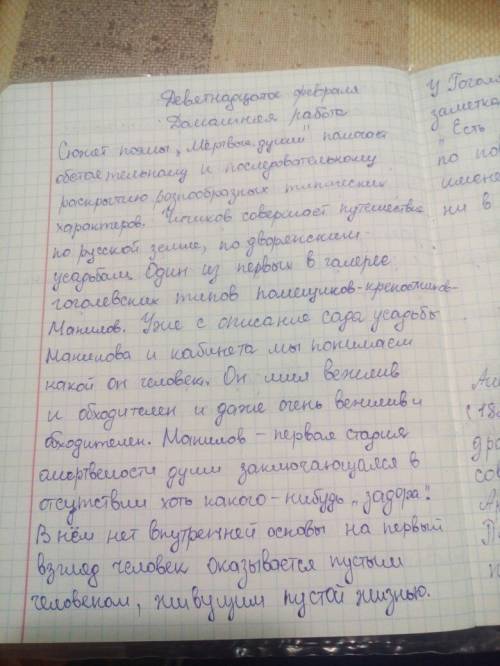 Девятнадцатое февраля
Домашняя работа
Сюжет поэмы „Мёртвые души" помогает
обстоятельному и последовательному
раскрытию разнообразных типических
характеров. Чичиков совершает путешествие
по русской земле, по дворянским
усадьбам. Один из первых в галерее
гоголевских типов помещиков-крепостников-
Манилов. Уже с описание сада усадьбы
Манилова и кабинета мы понимаем
какой он человек. Он мил вежлив
и обходителен и даже очень вежлив и
обходителен. Манилов - первая стадия
омертвелости души заключающаяся в
отсутствии хоть какого-нибудь „задора".
В нём нет внутренней основы на первый
взгляд человек оказывается пустым
человеком, живущим пустой жизнью.
У Гогол
заметка
"Есть
по по
имене
ни в
(18